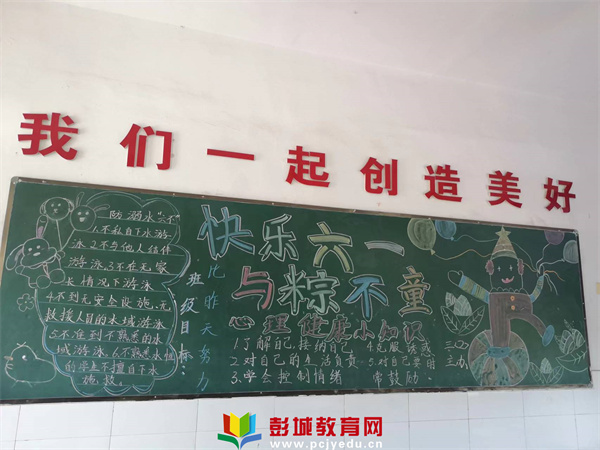 我们一起创造美好
防溺水“六不”
1.不私自下水游
泳2.不与他人结伴
游泳3.不在无家
长情况下游泳
4.不到无安全设施、无
救援人员的水域游泳
5.不准到不熟悉的水
域游泳.6.不熟悉水性
的学生不擅自下水
施救。
班级目标:
比昨天努力
快乐六一
与粽不童
心理健康小知识
1.了解自己接纳自己
2.对自己的生活自责
3.学会控制情绪
4.克服诱惑
5.对自己要
常鼓励.
三(2)
主办
彭城教育网
www.pcjyedu.cn